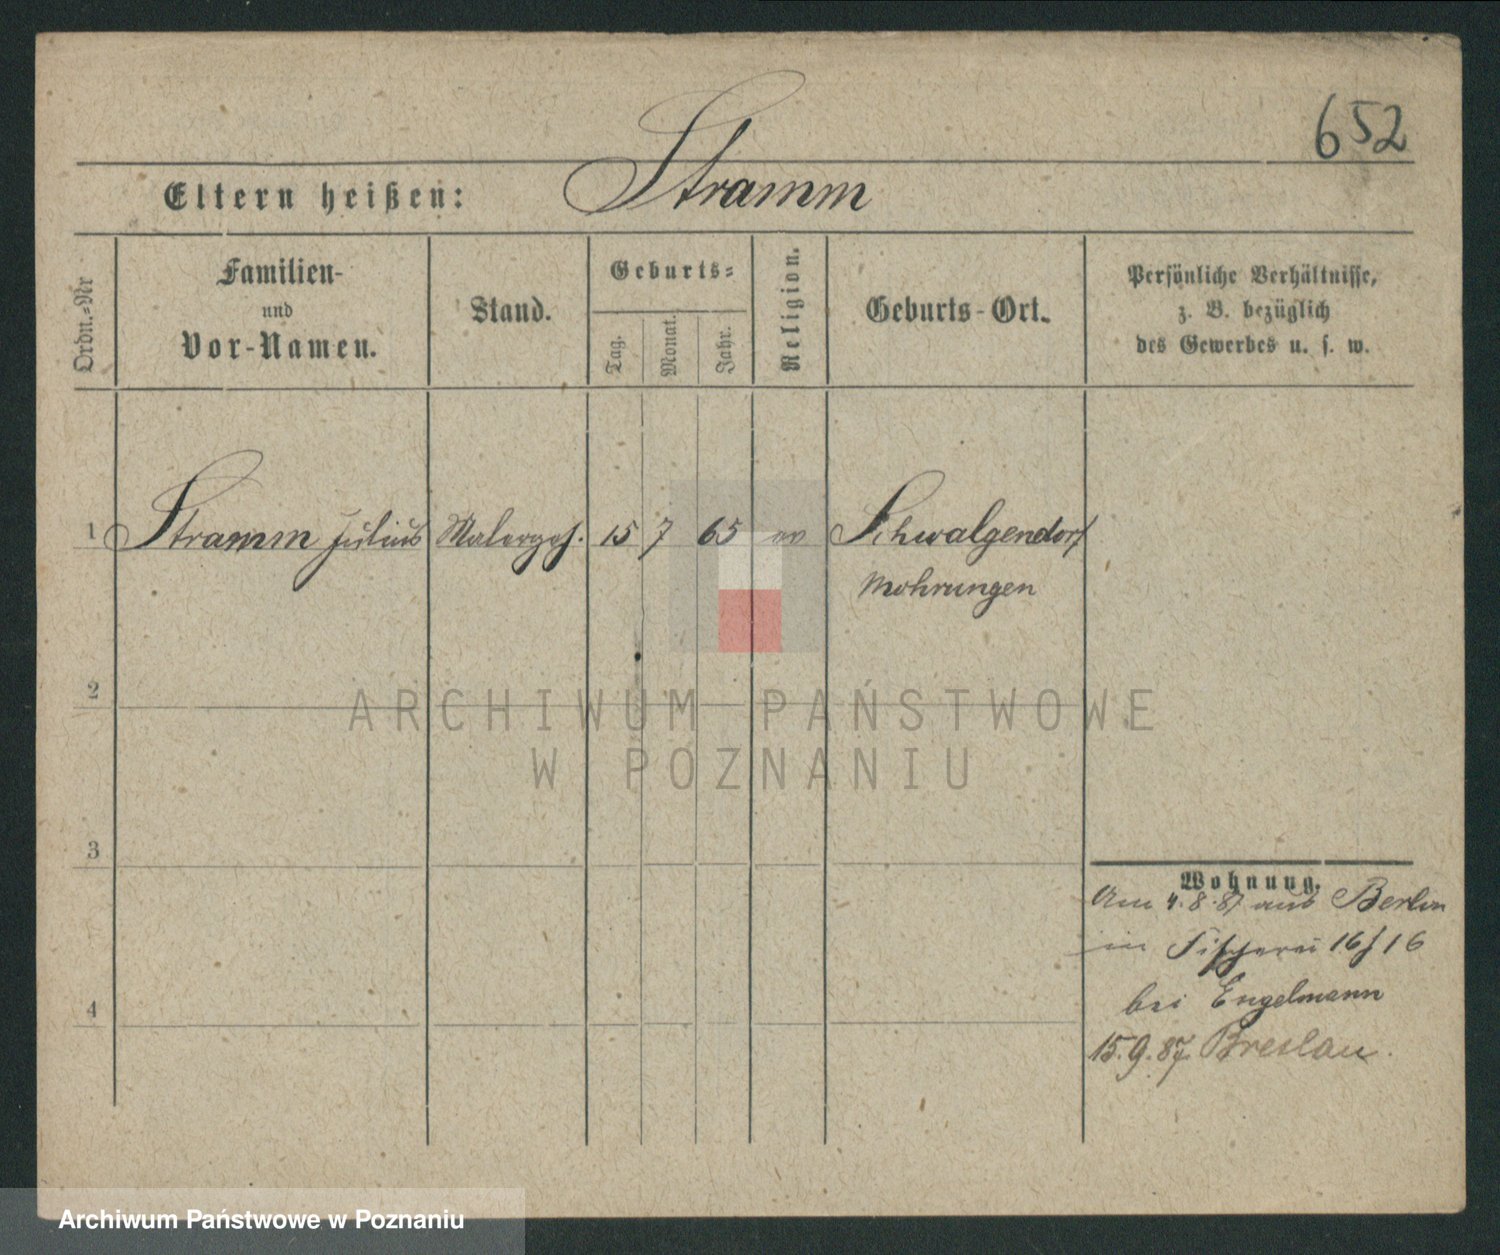 652
Eltern heißen: Stramm
Ordn.-Nr
Familien-
und
Vor-Namen.
Stand.
Geburts-
Tag.
Monat.
Jahr.
Religion.
Geburts-Ort.
Persönliche Verhältnisse,
z. B. bezüglich
des Gewerbes u. s. w.
1 Stramm Julius Malergeh. 15 7 65 ev Schwalgendorf
Mohrungen
2
ARCHIWUM PAŃSTWOWE
W POZNANIU
3
4
Wohnung.
Am 4.8.87 aus Berlin
in Fischerei 16/16
bei Engelmann
15.9.87 Breslau.
Archiwum Państwowe w Poznaniu